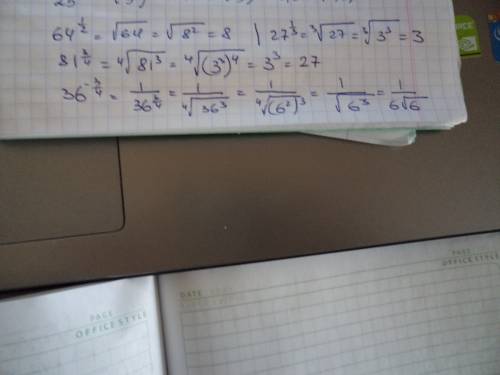 64^{1/2} = √64 = √8² = 8 | 27^{1/3} = ∛27 = ∛3³ = 3
81^{3/4} = ∜81³ = ∜(3³)⁴ = 3³ = 27
36^{-3/4} = 1/36^{3/4} = 1/∜36³ = 1/∜(6²)³ = 1/√6³ = 1/6√6
PAGE
OFFICE STYLE
DATE
PAGE
OFFICE STYLE